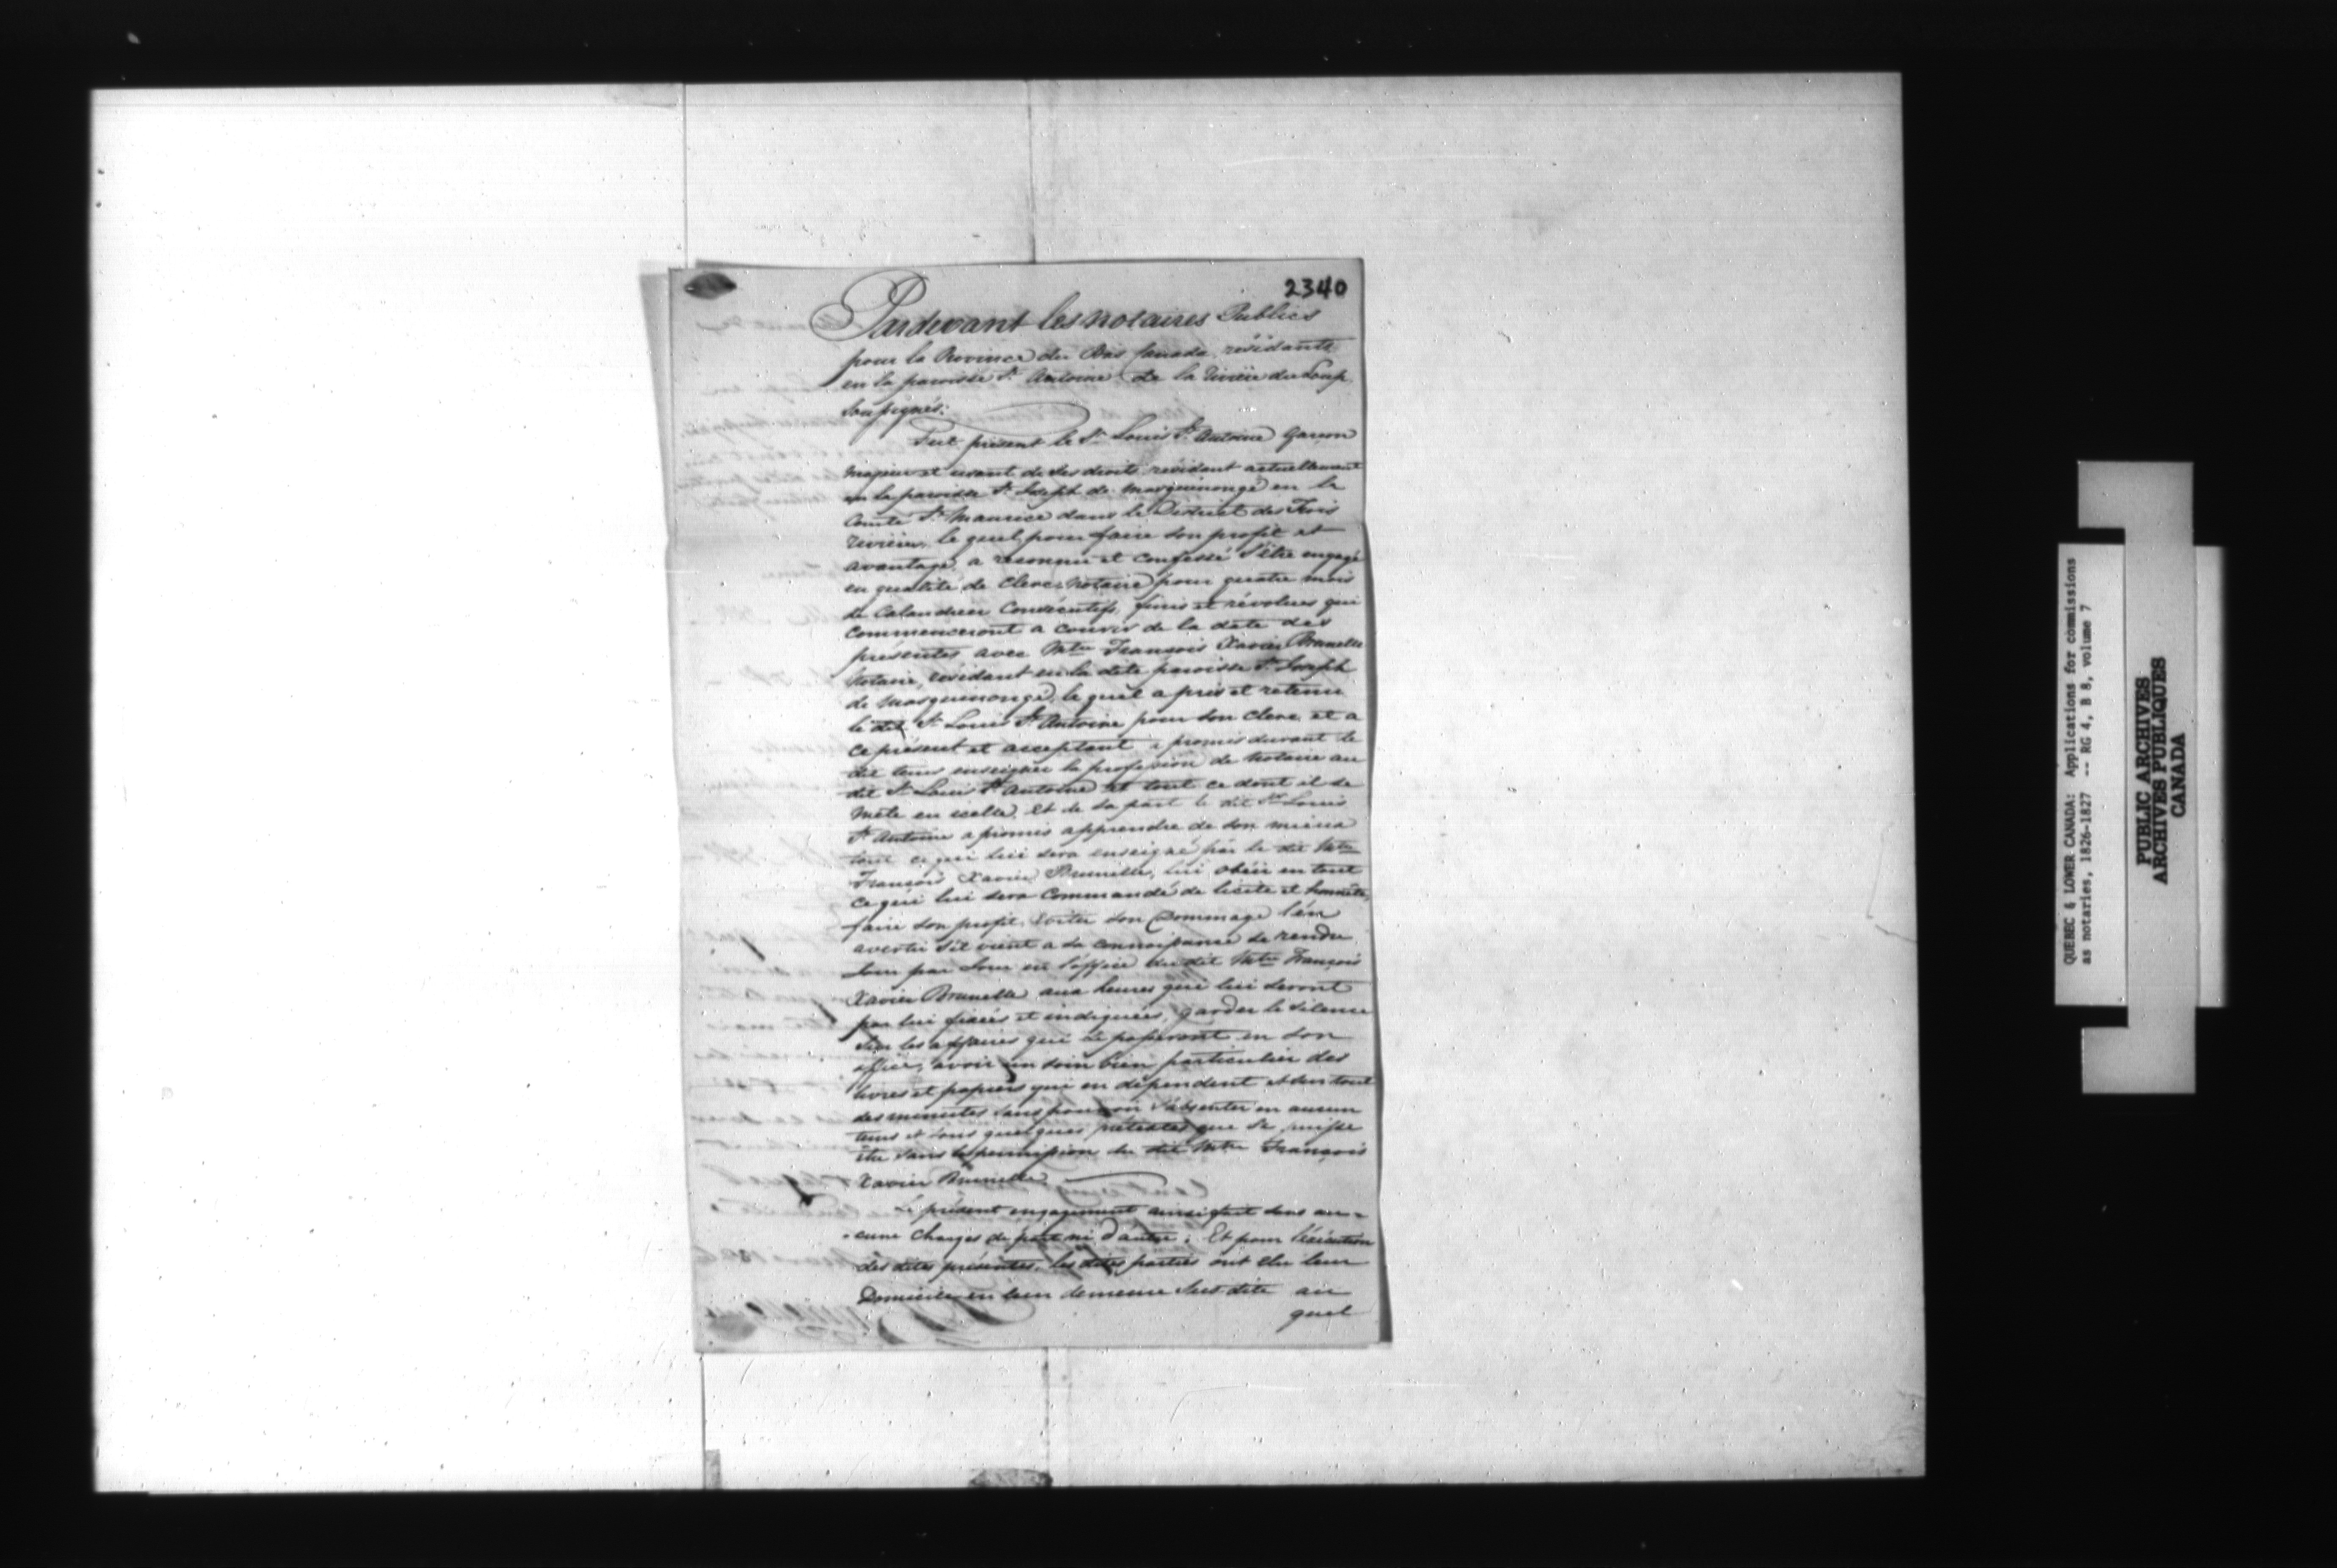 2340
Pardevant les notaires Publics
pour la Province du Bas Canada, résidants
en la paroisse St. Antoine de la Rivière du Loup
Soussignés:
Fut présent le Sr. Louis St. Antoine Garçon
majeur et usant de ses droits résidant actuellement
en la paroisse St. Joseph de Masquinongé en le
Comté St. Maurice dans le District des Trois
rivières, le quel pour faire son profit et
avantage, a reconnu et confessé s'être engagé
en qualité de Clerc-Notaire pour quatre mois
de Calandrier Consécutifs, finis et révolues qui
Commenceront a courir de la date des
présentes avec Mtre François Xavier Brunelle
Notaire, résidant en la dite paroisse St. Joseph
de Masquinongé, le quel a pris et retenu
le dit Sr. Louis St. Antoine pour son Clerc, et a
ce présent et acceptant, a promis durant le
dit tems enseigner la profession de Notaire au
dit Sr. Louis St. Antoine et tout ce dont il se
mêle en icelle, et de sa part le dit Sr. Louis
St. Antoine a promis apprendre de son mieux
tout ce qui lui sera enseigné par le dit Mtre
François Xavier Brunelle, lui obéir en tout
ce qui lui sera Commandé de licite et honnête,
faire son profit, éviter son Dommage l'en
avertir s'il vient a sa connoissance se rendre
Jour par Jour en l'office du dit Mtre François
Xavier Brunelle aux heures qui lui seront
par lui fixées et indiquées, garder le silence
sur les affaires qui se passeront en son
office, avoir un soin bien particulier des
livres et papiers qui en dépendent et sur tout
des minutes sans pouvoir s'absenter en aucun
tems et sous quelques prétextes que se puisse
être sans la permission du dit Mtre François
Xavier Brunelle
Le présent engagement ainsi fait sans au-
-cune Charges de part ni d'autre; Et pour l'exécution
des dites présentes, les dites parties ont élu leur
Domicile en leur demeure Sus dite au
quel
QUEBEC & LOWER CANADA: Applications for commissions
as notaries, 1826-1827 -- RG 4, B 8, volume 7
PUBLIC ARCHIVES
ARCHIVES PUBLIQUES
CANADA